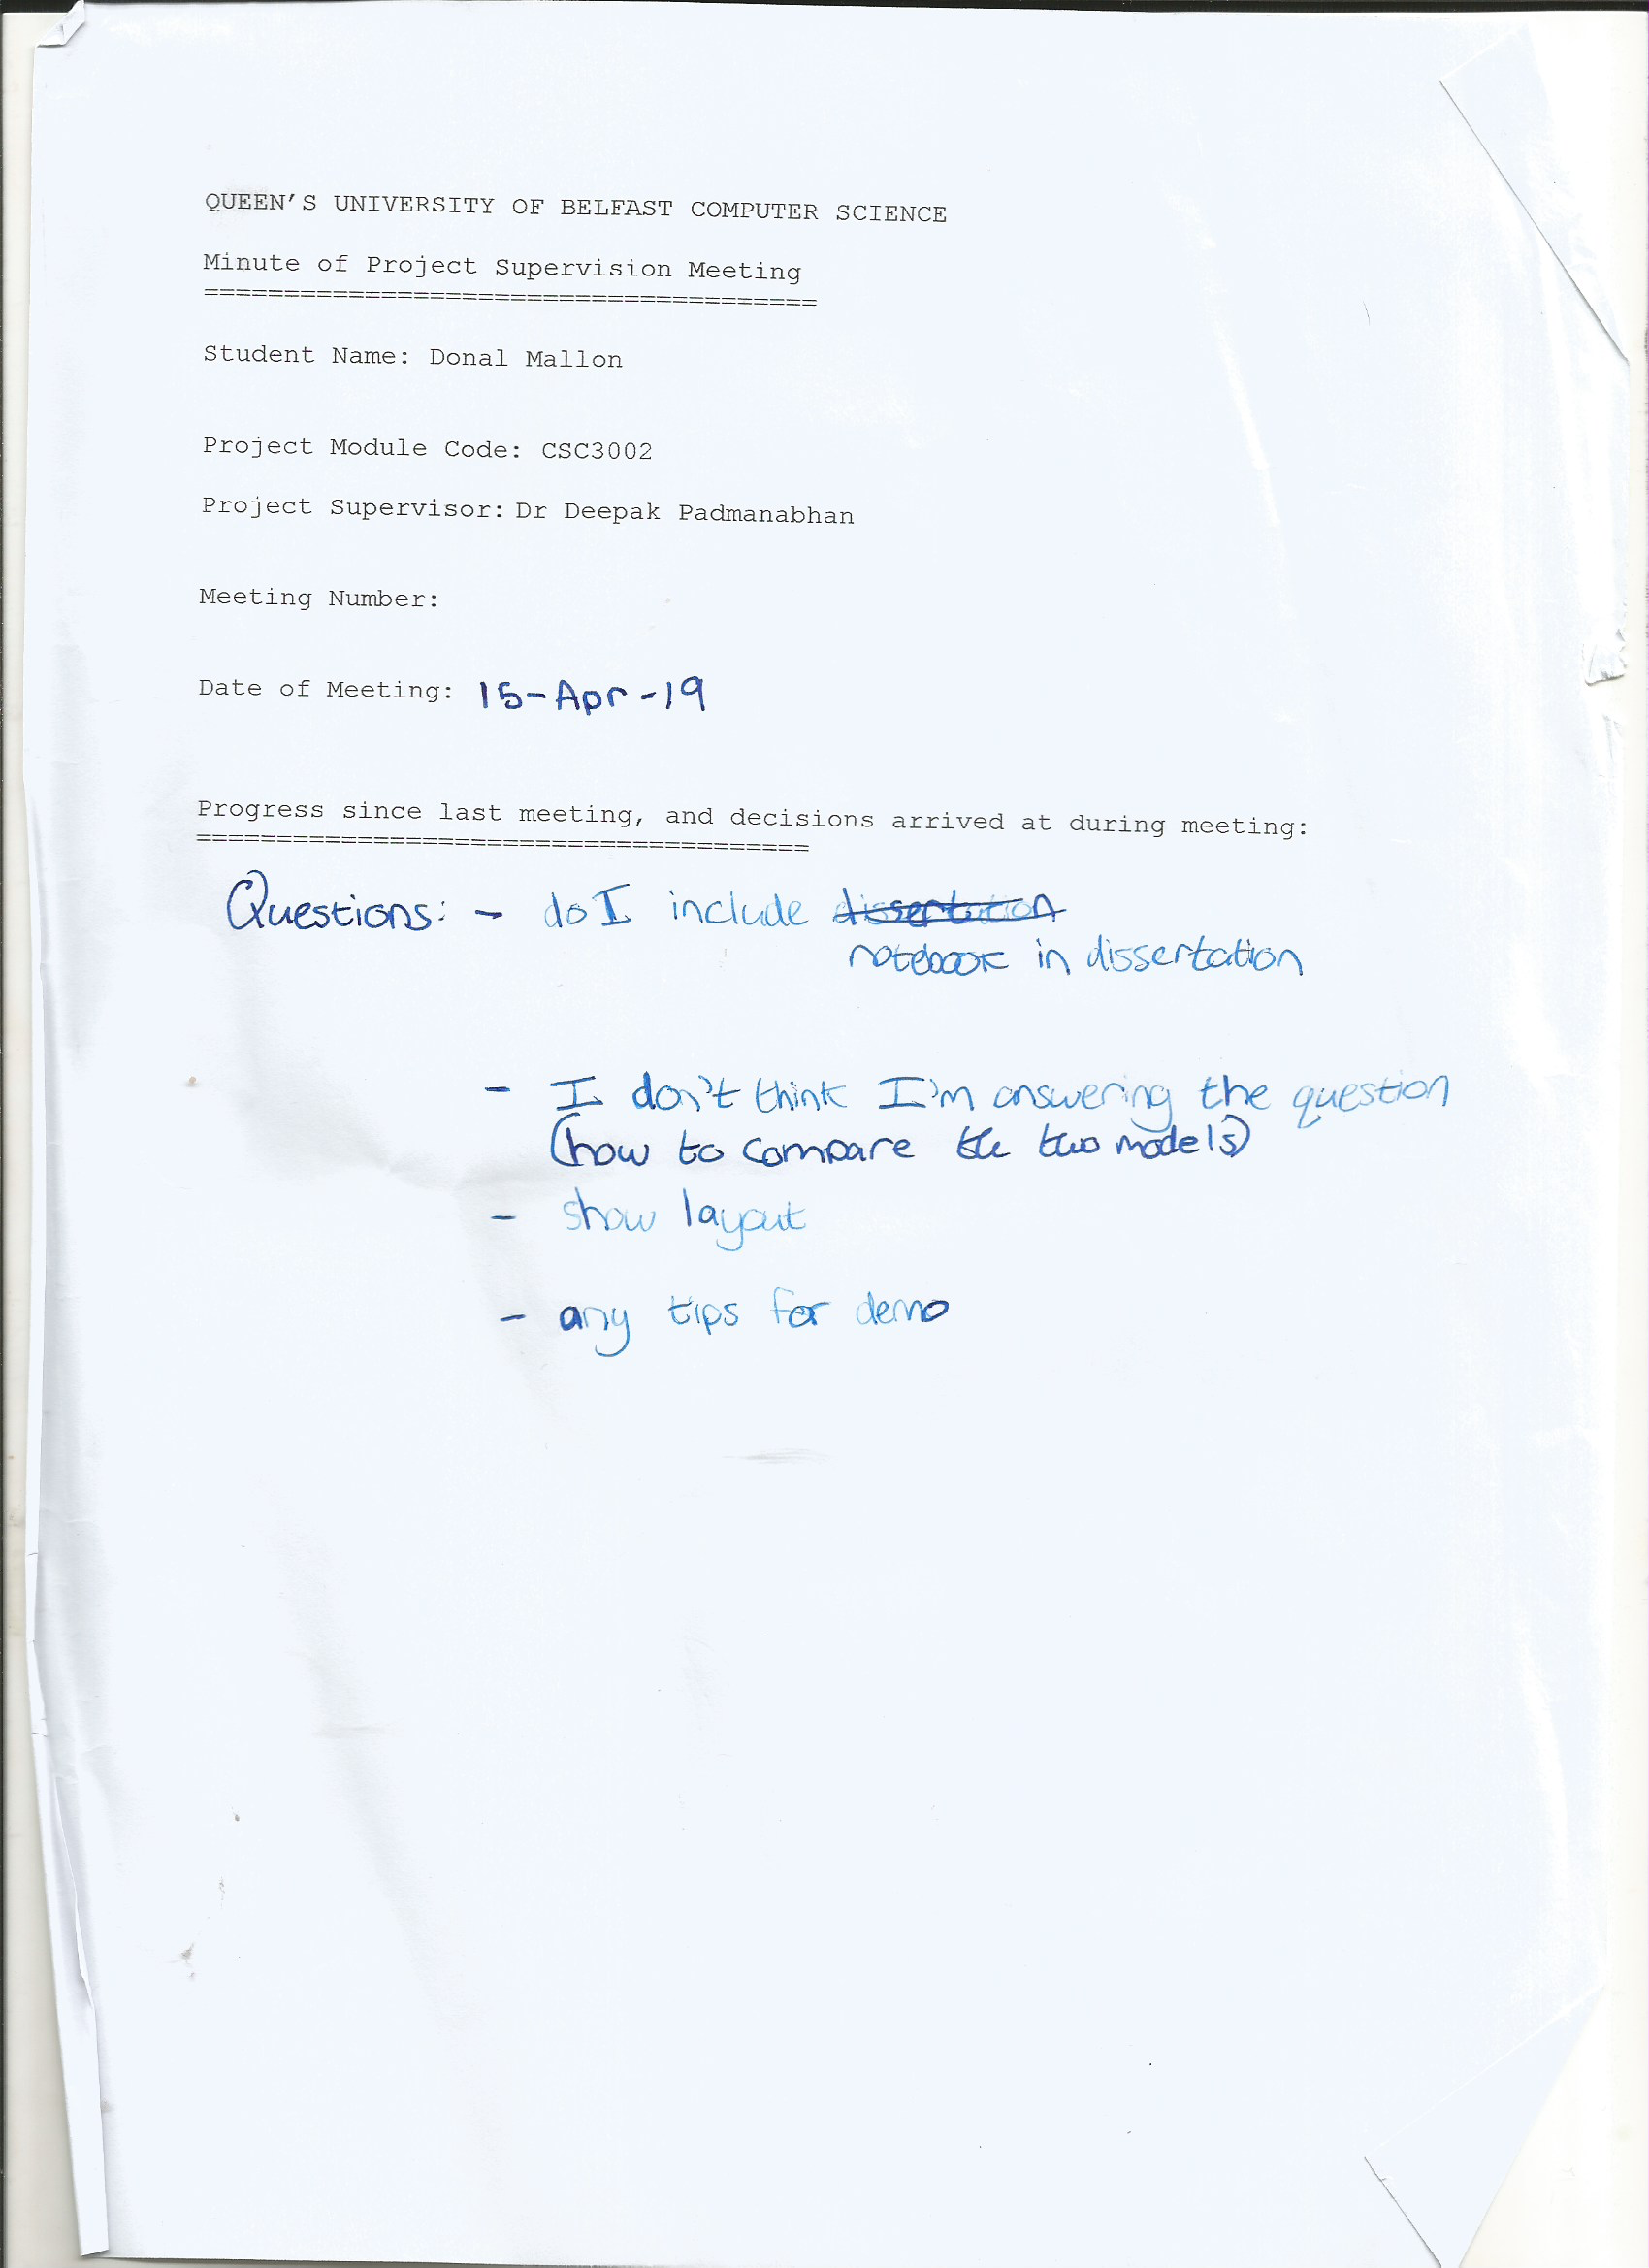 QUEEN'S UNIVERSITY OF BELFAST COMPUTER SCIENCE
Minute of Project Supervision Meeting
======================================
Student Name: Donal Mallon
Project Module Code: CSC3002
Project Supervisor: Dr Deepak Padmanabhan
Meeting Number:
Date of Meeting: 15-Apr-19
Progress since last meeting, and decisions arrived at during meeting:
======================================
Questions: - do I include dissertation
notebook in dissertation
- I don't think I'm answering the question
(how to compare the two models)
- show layout
- any tips for demo